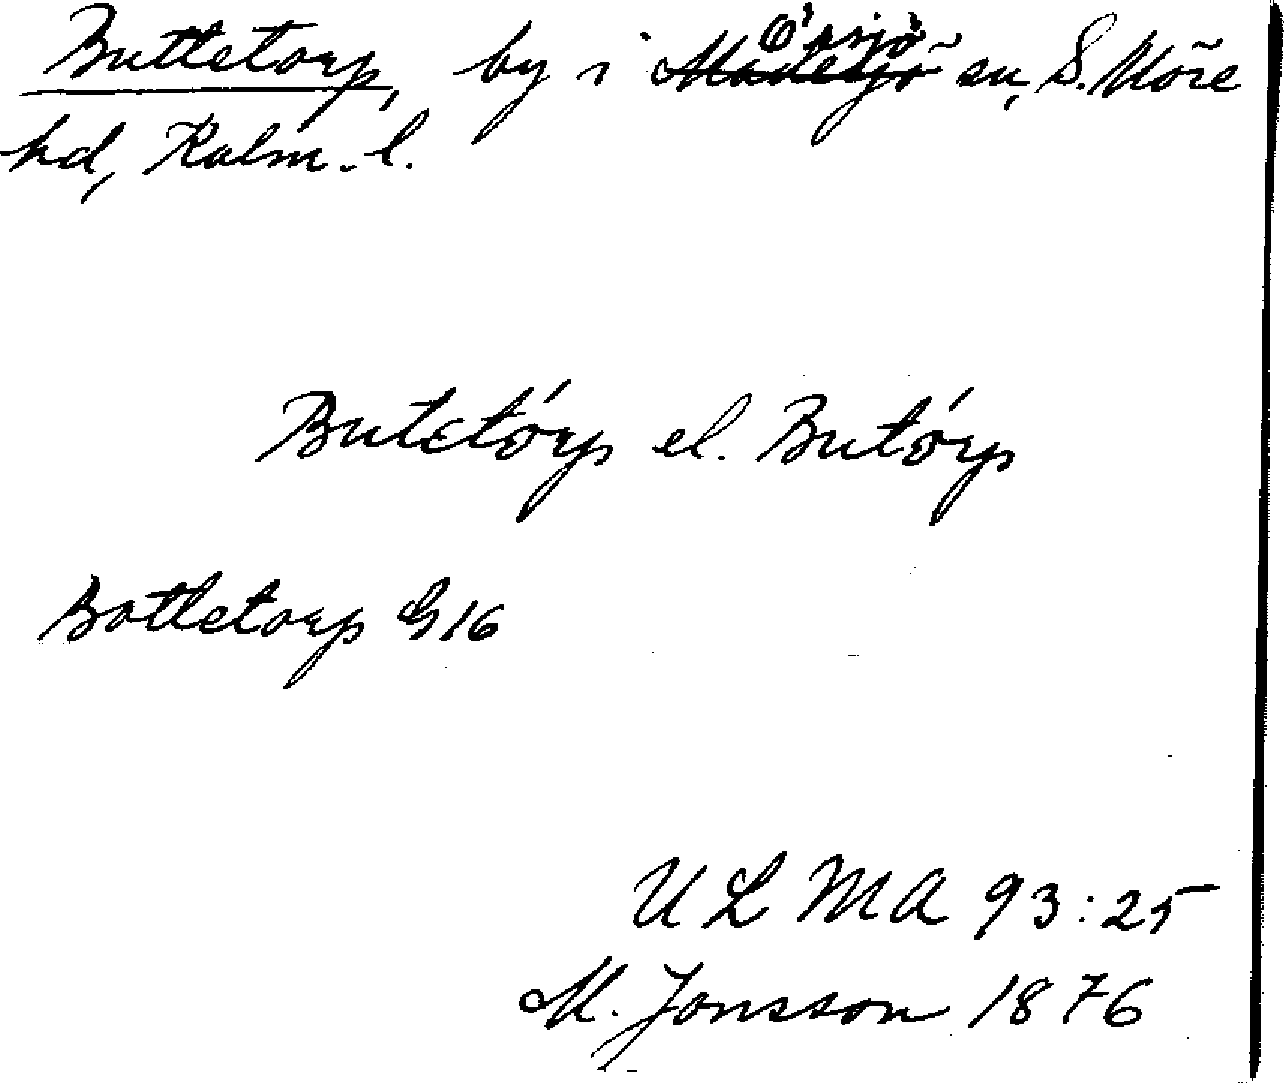 Buttetorp, by i Madesjö Örsjö sn, S. Möre
hd, Kalm. l.
Butetórp el. Butórp
Botletorp G16
ULMA 93:25
M. Jonsson 1876